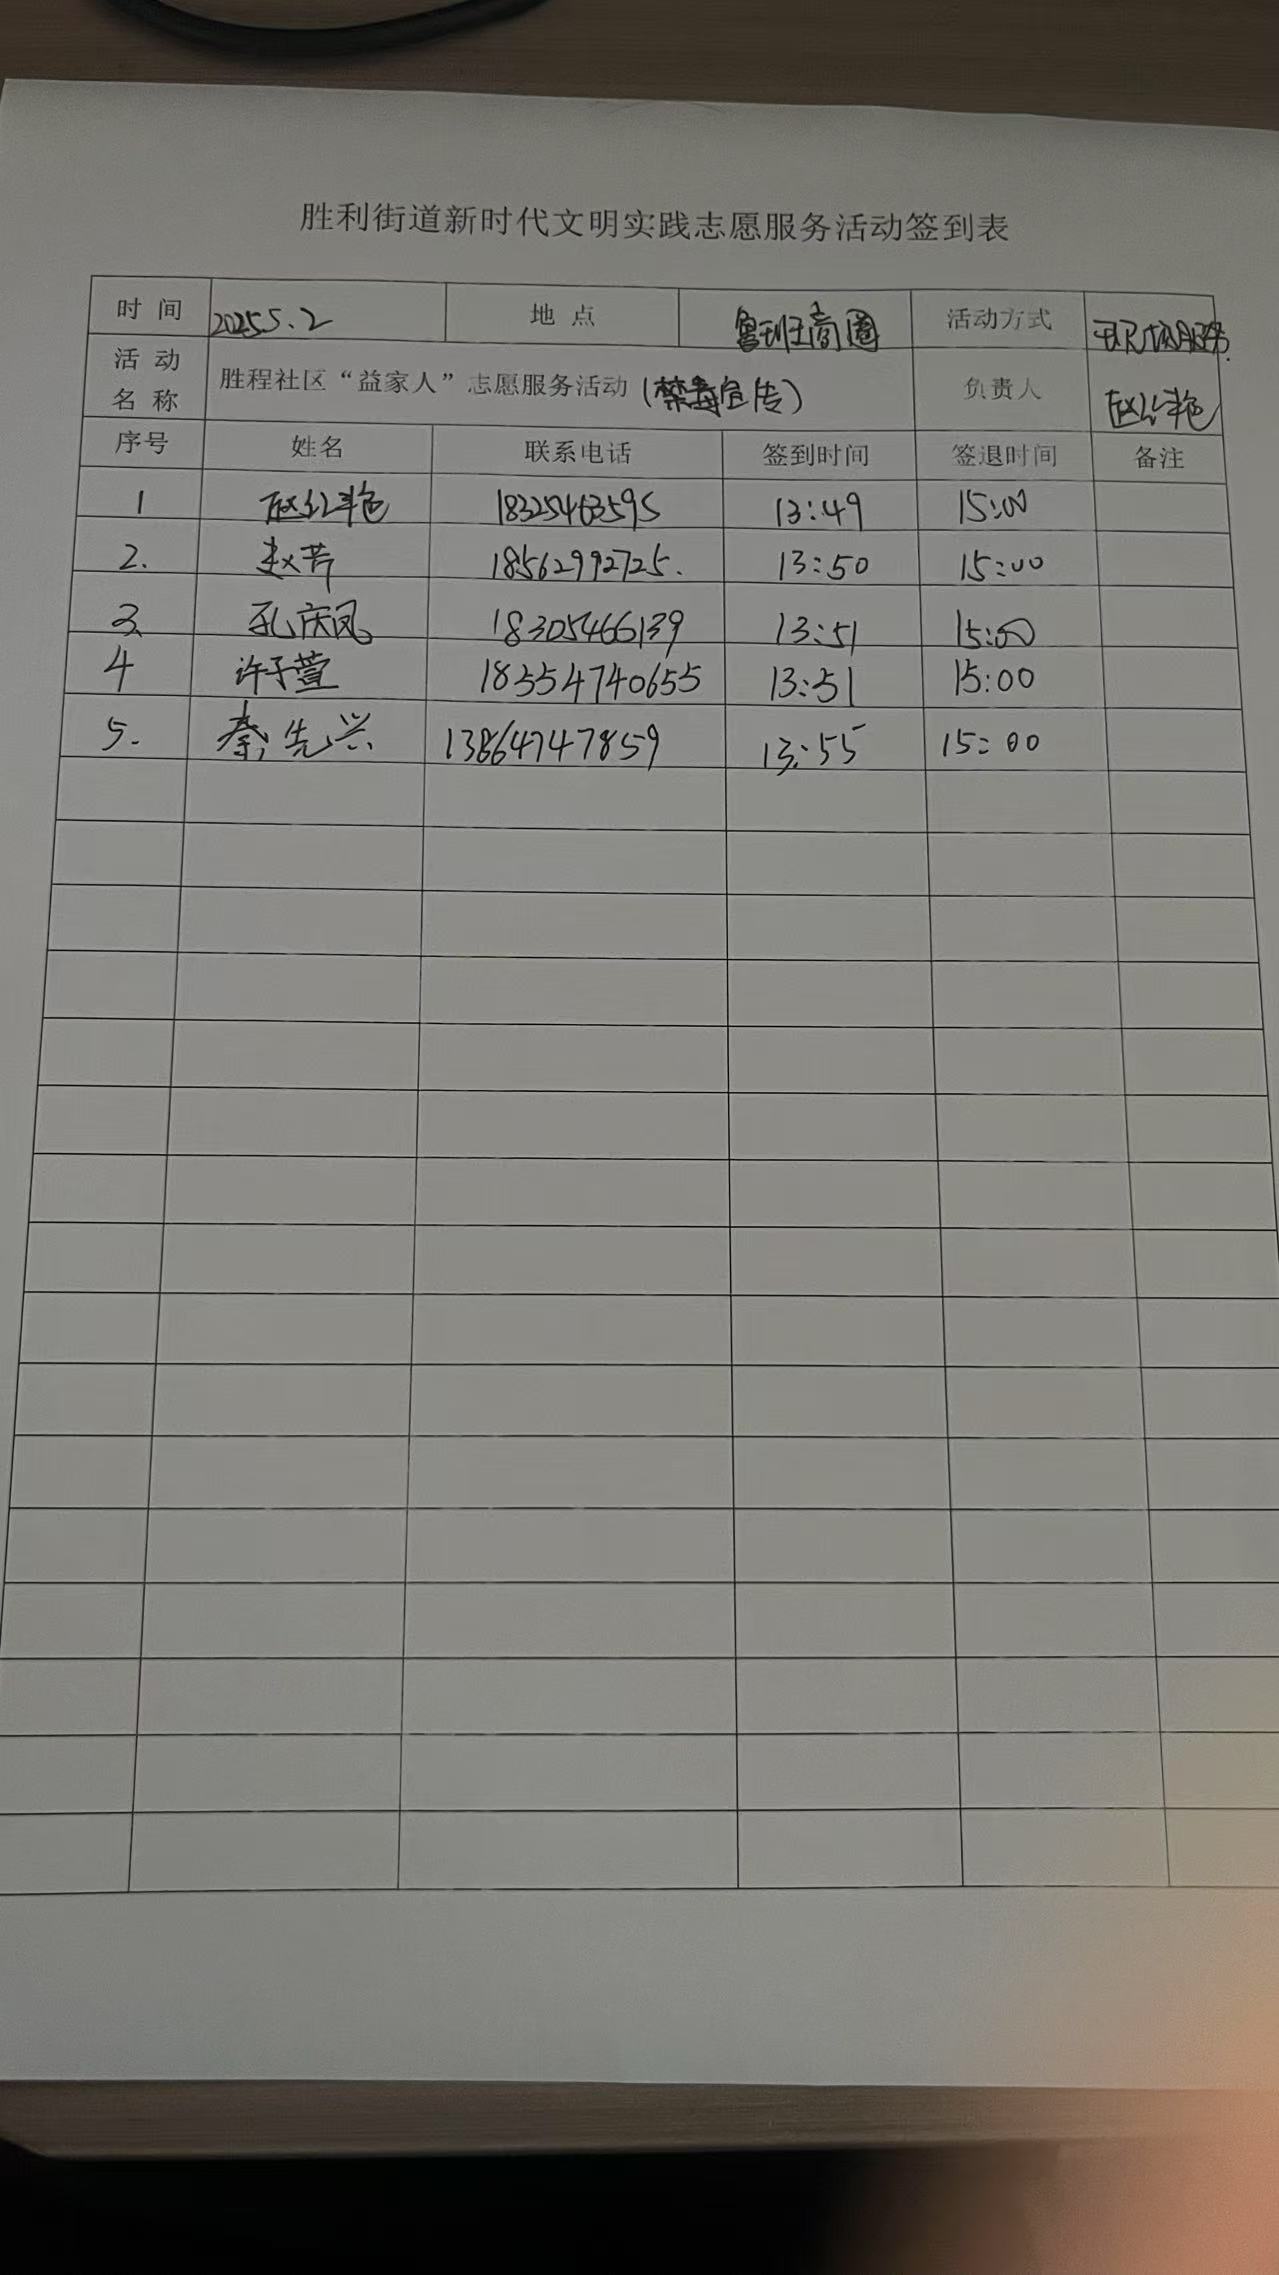 胜利街道新时代文明实践志愿服务活动签到表
时 间 2025.5.2 地 点 鲁班商圈 活动方式 服务
活 动 名 称 胜程社区“益家人”志愿服务活动（禁毒宣传） 负责人
序号 姓名 联系电话 签到时间 签退时间 备注
1 18325463595 13:49 15:00
2. 赵芳 18562992725. 13:50 15:00
3. 孔庆凤 18305466139 13:51 15:00
4 许子萱 183554740655 13:51 15:00
5. 秦先兴 13864747859 13:55 15:00